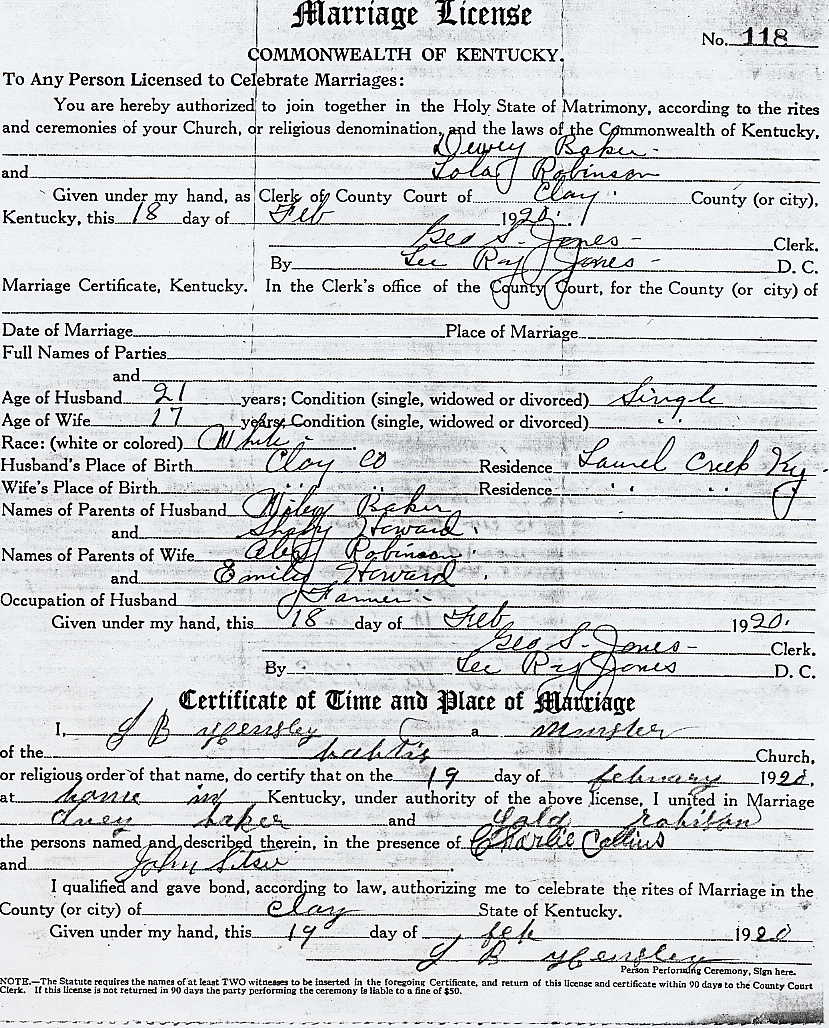 Marriage License
No. 118
COMMONWEALTH OF KENTUCKY.
To Any Person Licensed to Celebrate Marriages:
You are hereby authorized to join together in the Holy State of Matrimony, according to the rites
and ceremonies of your Church, or religious denomination, and the laws of the Commonwealth of Kentucky,
Dewey Baker
and Lola Robinson
Given under my hand, as Clerk of County Court of Clay County (or city),
Kentucky, this 18 day of Feb 1920.
Geo S. Jones Clerk.
By Lee Roy Jones D. C.
Marriage Certificate, Kentucky. In the Clerk's office of the County Court, for the County (or city) of
Date of Marriage Place of Marriage
Full Names of Parties
and
Age of Husband 21 years; Condition (single, widowed or divorced) Single
Age of Wife 17 years; Condition (single, widowed or divorced) " "
Race: (white or colored) White
Husband's Place of Birth Clay Co Residence Laurel Creek Ky.
Wife's Place of Birth " " Residence " " "
Names of Parents of Husband Wiley Baker
and Howard.
Names of Parents of Wife Alex Robinson.
and Emily Howard.
Occupation of Husband Farmer
Given under my hand, this 18 day of Feb 1920.
Geo S. Jones Clerk.
By Lee Roy Jones D. C.
Certificate of Time and Place of Marriage
I, B Hensley a minster
of the babtis Church,
or religious order of that name, do certify that on the 19 day of february 1920,
at home in Kentucky, under authority of the above license, I united in Marriage
baker and robison
the persons named and described therein, in the presence of Charlie Collins
and John
I qualified and gave bond, according to law, authorizing me to celebrate the rites of Marriage in the
County (or city) of Clay State of Kentucky.
Given under my hand, this 19 day of feb 1920
B Hensley
Person Performing Ceremony, Sign here.
NOTE.—The Statute requires the names of at least TWO witnesses to be inserted in the foregoing Certificate, and return of this license and certificate within 90 days to the County Court
Clerk. If this license is not returned in 90 days the party performing the ceremony is liable to a fine of $50.